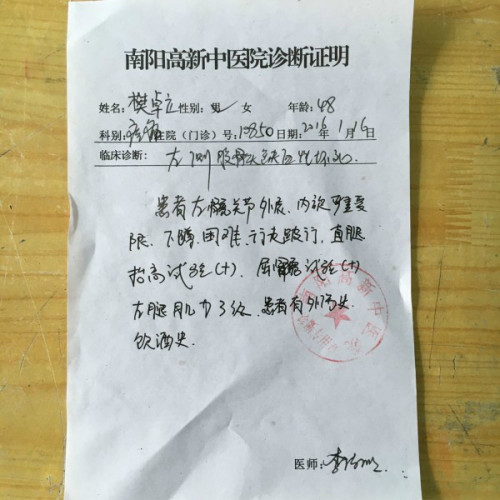 南阳高新中医院诊断证明
姓名:樊卓立性别:男 女 年龄:48
科别:疼痛住院(门诊)号:10850日期:2016年1月16日
临床诊断: 左侧股骨头缺血性坏死.
患者左髋关节外展、内收严重受
限、下蹲困难、行走跛行、直腿
抬高试验(+).屈髋试验(+)
左腿肌力3级、患者有外伤史、
饮酒史.
南阳高新中医
医师:李